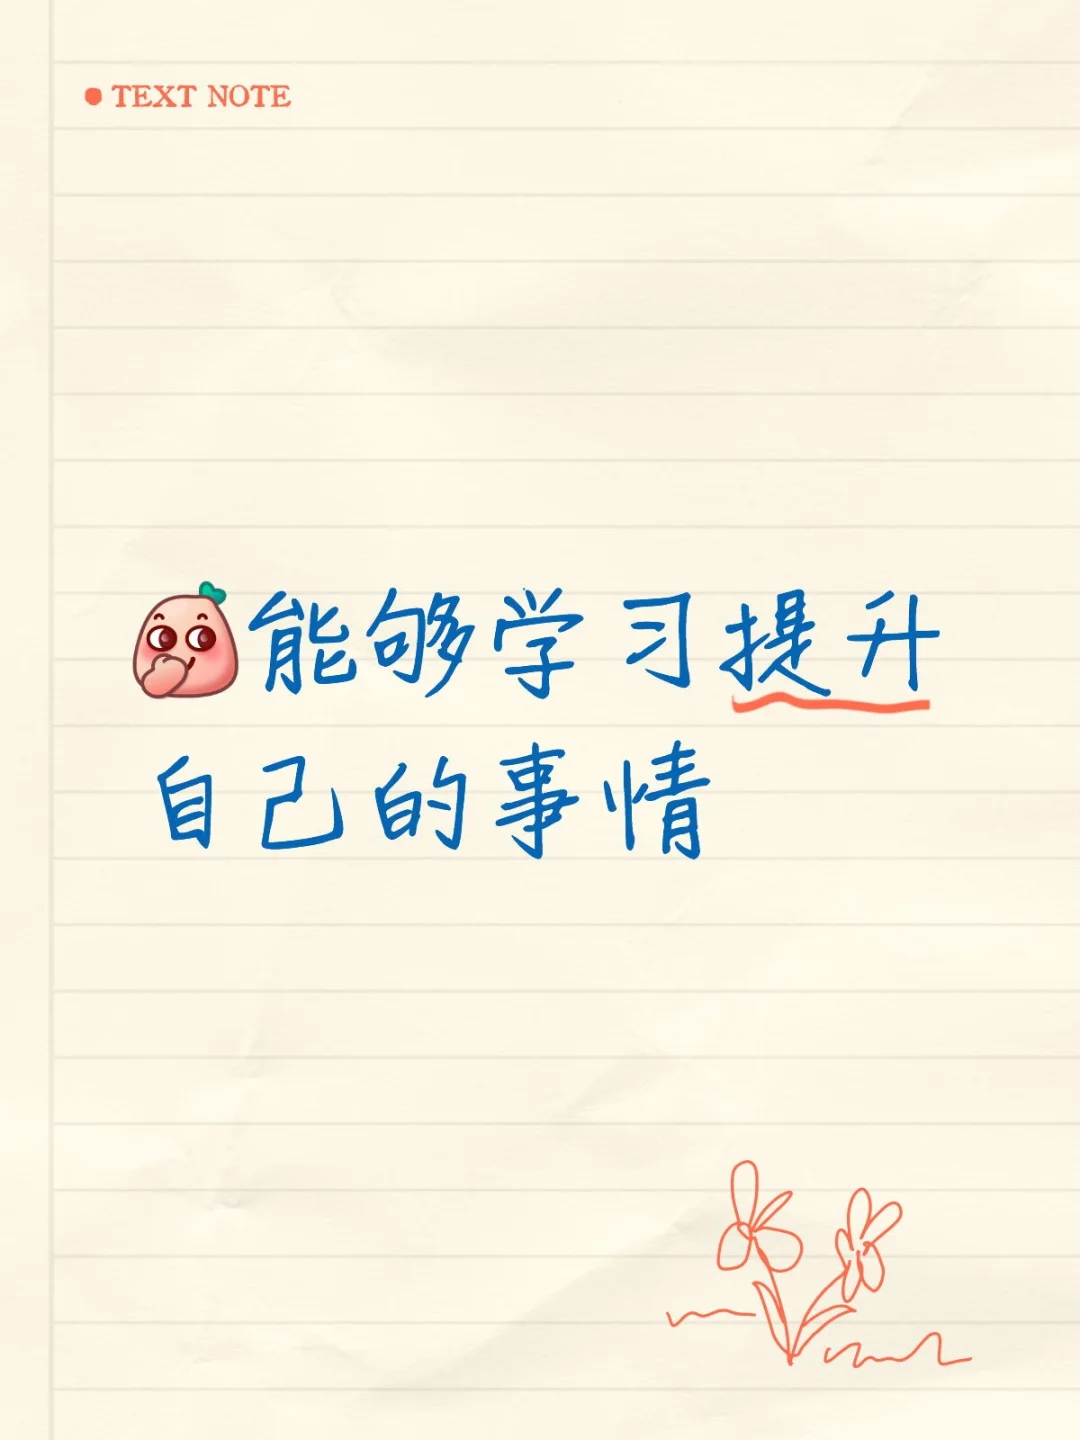 TEXT NOTE
能够学习提升
自己的事情